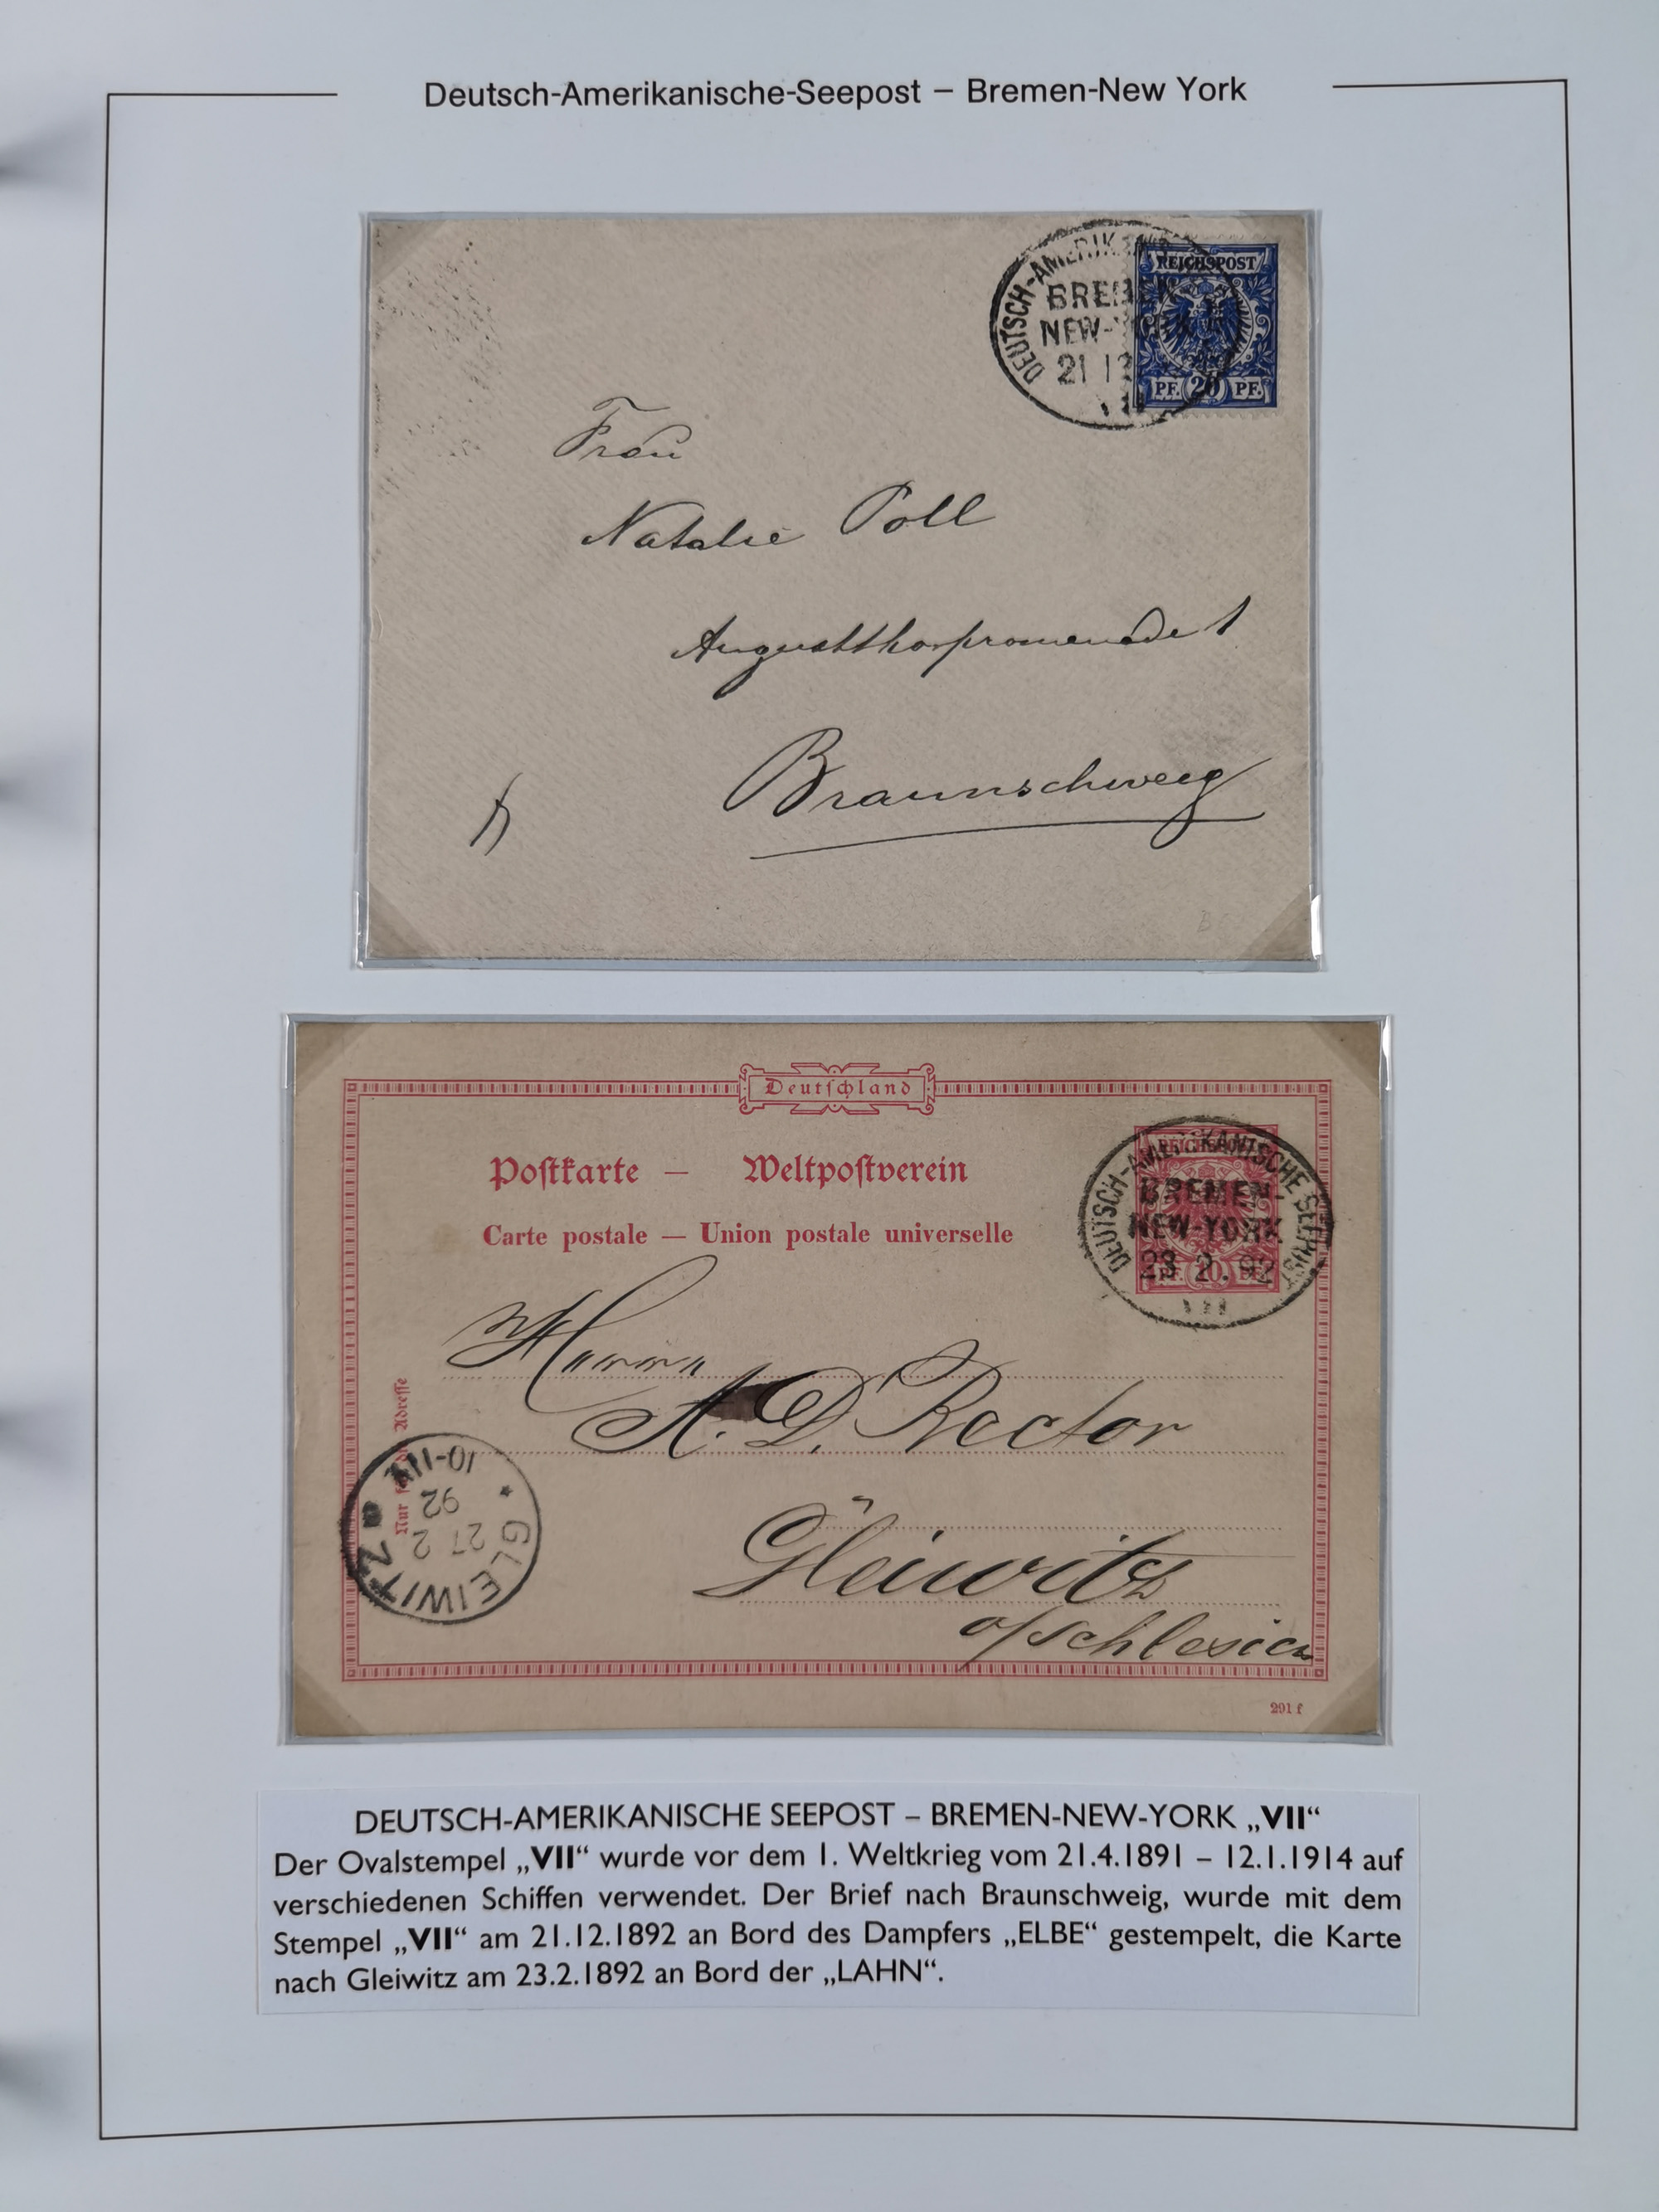 Deutsch-Amerikanische-Seepost – Bremen-New York
DEUTSCH-AMERIKANIS
REICHSPOST
BREMEN
NEW-YORK
21 12
VII
PF. 20 PF.
Frau
Natalie Poll
Augustthorpromenade 1
Braunschweig
Deutſchland
Poſtkarte — Weltpoſtverein
Carte postale — Union postale universelle
DEUTSCH-AMERIKANISCHE SEEPOST
REICHSPOST
BREMEN-
NEW-YORK
23 2. 92
PF. 10 PF.
VII
Herrn
A. D. Rector
Gleiwitz
o/schlesien
Nur für die Adreſſe
GLEIWITZ
27 2
92
10-11V
291 f
DEUTSCH-AMERIKANISCHE SEEPOST – BREMEN-NEW-YORK „VII“
Der Ovalstempel „VII“ wurde vor dem 1. Weltkrieg vom 21.4.1891 – 12.1.1914 auf
verschiedenen Schiffen verwendet. Der Brief nach Braunschweig, wurde mit dem
Stempel „VII“ am 21.12.1892 an Bord des Dampfers „ELBE“ gestempelt, die Karte
nach Gleiwitz am 23.2.1892 an Bord der „LAHN“.